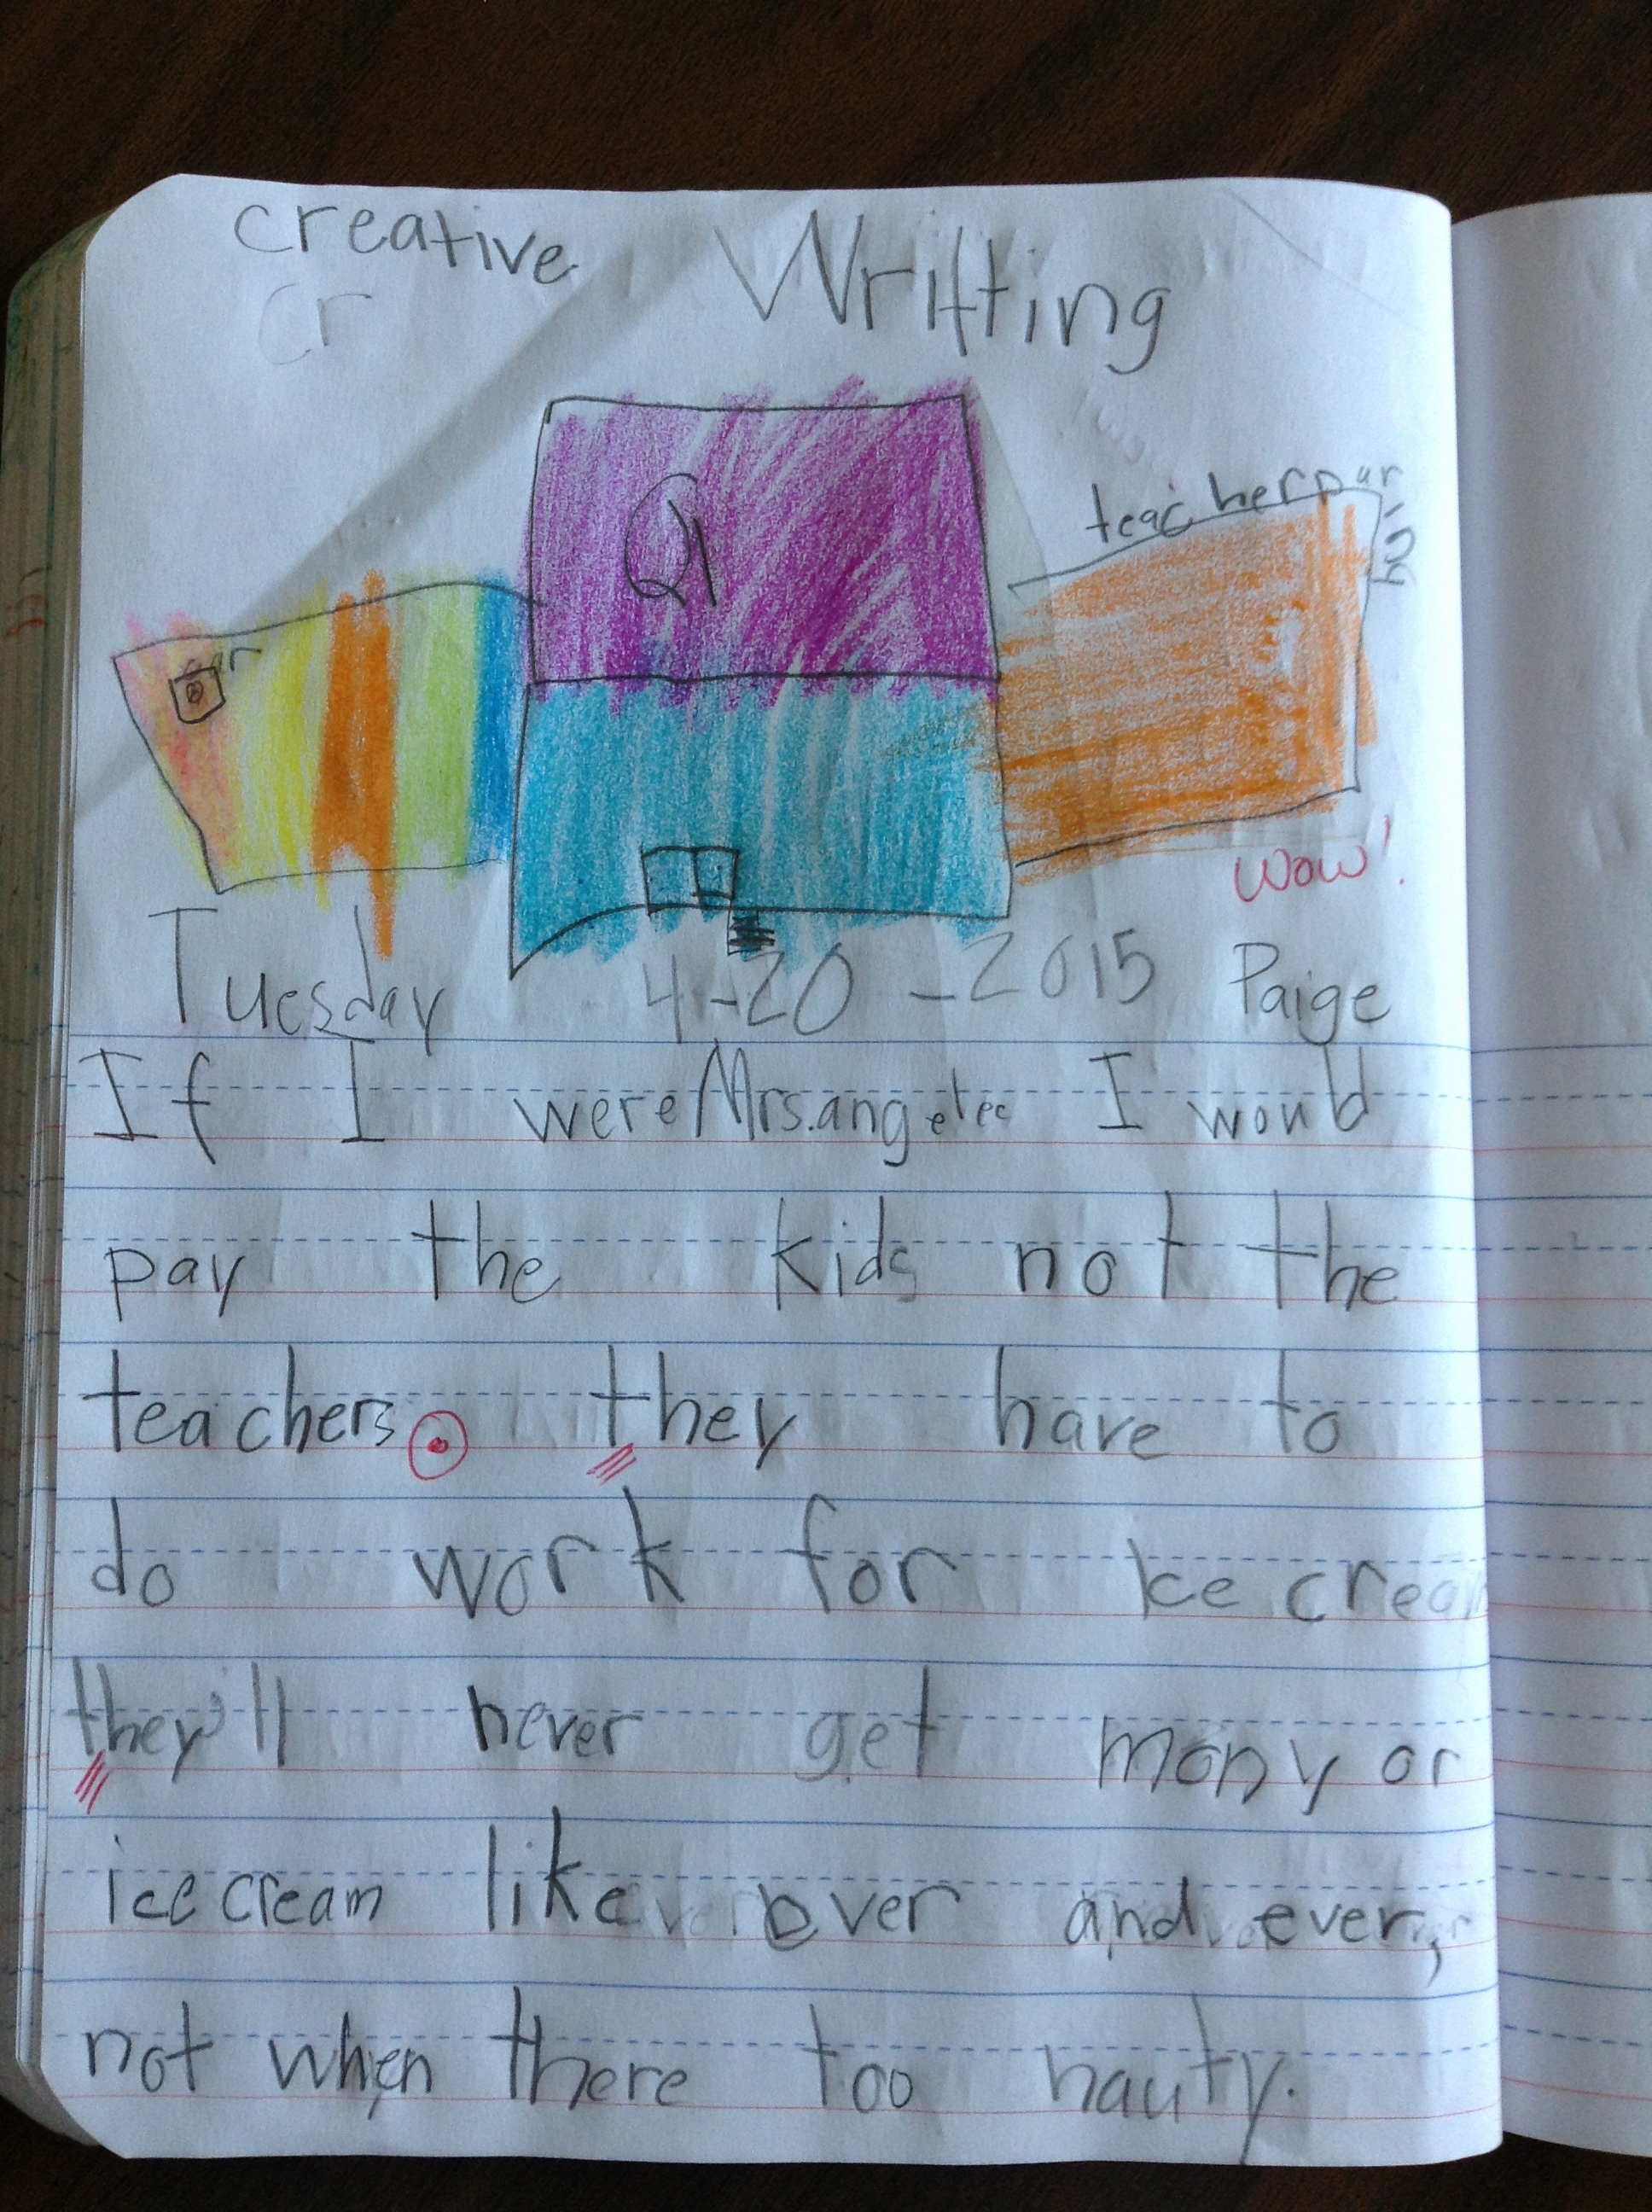 creative Writting
cr
Q1
teacher par
king
wow!
Tuesday 4-20-2015 Paige
If I were Mrs. I would
pay the kids not the
teachers. they have to
do work for Ice cream
they'll never get mony or
icecream like ever and ever,
not when there too nauty.